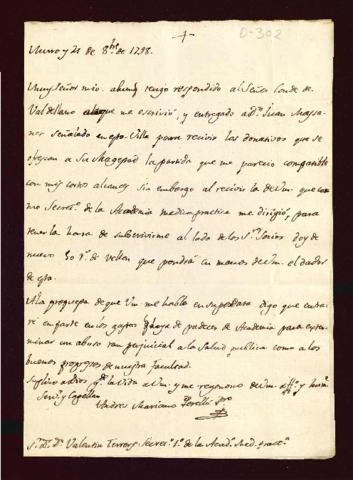 D-302
Muro y 21 de 8bre de 1798.
Muy Señor mio. aunq tengo respondido al Señor Conde de
Valdellano a la que me escrivió, y entregado a Dn Juan Massa-
ner señalado en esta Villa para recivir los donativos que se
ofrescan a Su Magestad la partida que me pareció compatible
con mis cortos alcanses. Sin embargo al recivir la de Vm. que co-
mo Secreto. de la Academia medico practica me dirigió, para
tener la honra de subscrivirme al lado de los Srs. Socios doy de
nuevo 50 rs. de vellon que pondrá en manos de Vm. el dador
de esta.
A la propuesta de que Vm me habla en su posdata digo que entra-
ré en parte en los gastos q haya de padecer la Academia para exter-
minar un abuso tan perjudicial a la Salud publica como a los
buenos progresos de nuestra facultad.
Suplico a Dios gde la vida a Vm. y me repongo de Vm. affo. y
Servr. y Capellan
Andres Mariano Perelló Pro
Sr. Dr. Dn. Valentin Terrers Secreto. 1o. de la Acada. Med. practca.